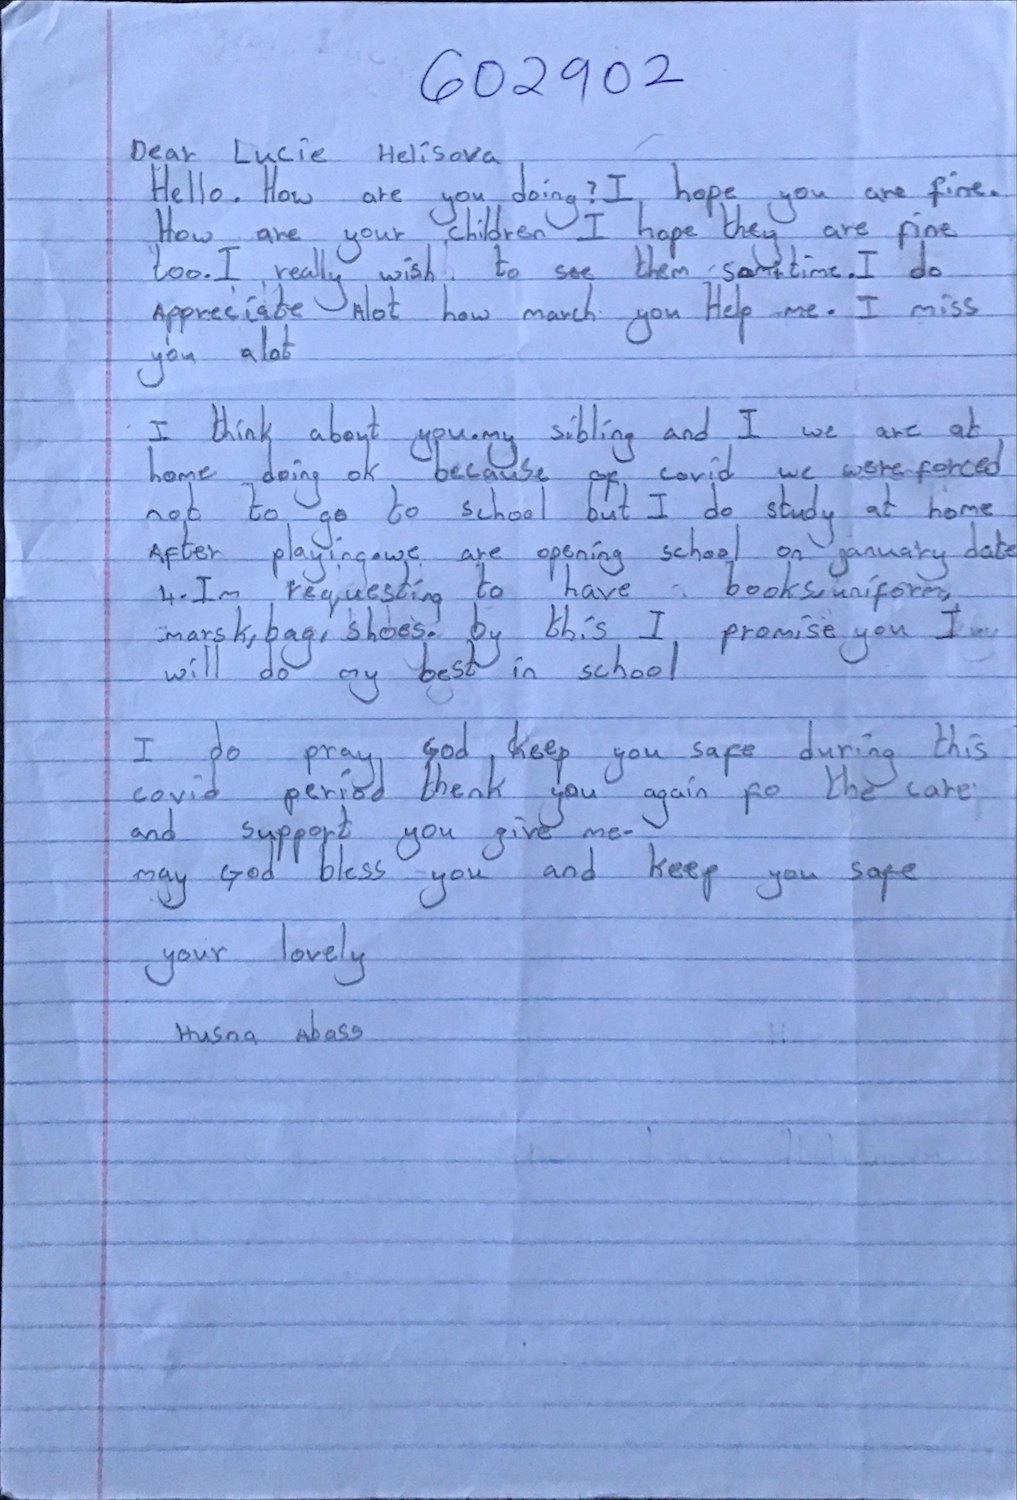 602902
Dear Lucie Helisova
Hello. How are you doing? I hope you are fine.
How are your children I hope they are fine
too. I really wish to see them sometime. I do
Appreciate Alot how march you Help me. I miss
you alot
I think about you. my sibling and I we are at
home doing ok because of covid we were forced
not to go to school but I do study at home
After playing. we are opening school on january date
4. Im requesting to have books, uniform,
marsk, bag, shoes. by this I promise you I
will do my best in school
I do pray God keep you safe during this
covid period thenk you again fo the care
and support you give me.
may God bless you and keep you safe
your lovely
Husna Abass